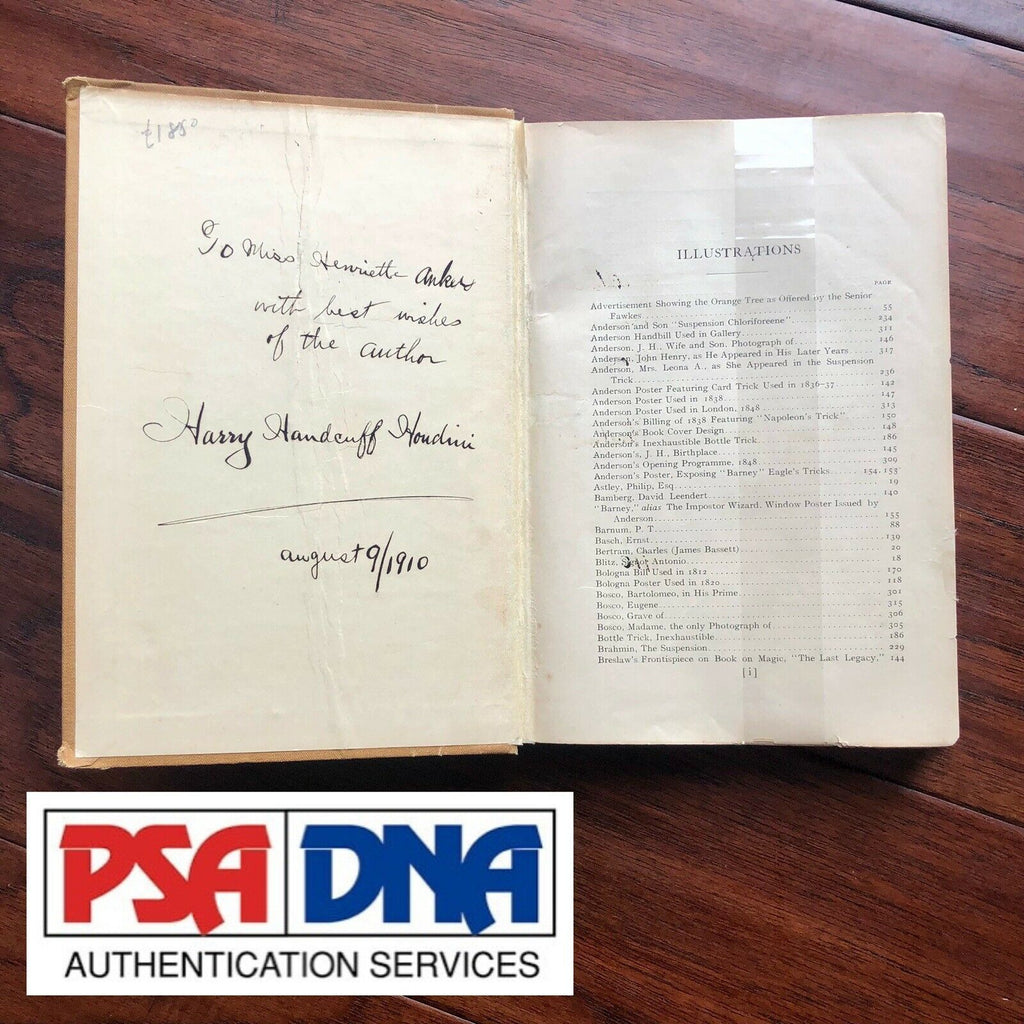 £1850
To Miss Henriette Ankers
with best wishes
of the author
Harry Handcuff Houdini
august 9/1910
ILLUSTRATIONS
PAGE
Advertisement Showing the Orange Tree as Offered by the Senior
Fawkes 55
Anderson and Son "Suspension Chloriforeene" 234
Anderson Handbill Used in Gallery 311
Anderson, J. H., Wife and Son, Photograph of 146
Anderson, John Henry, as He Appeared in His Later Years 317
Anderson, Mrs. Leona A., as She Appeared in the Suspension
Trick 236
Anderson Poster Featuring Card Trick Used in 1836-37 142
Anderson Poster Used in 1838 147
Anderson Poster Used in London, 1848 313
Anderson's Billing of 1838 Featuring "Napoleon's Trick" 150
Anderson's Book Cover Design 148
Anderson's Inexhaustible Bottle Trick 186
Anderson's, J. H., Birthplace 145
Anderson's Opening Programme, 1848 309
Anderson's Poster, Exposing "Barney" Eagle's Tricks 154, 153
Astley, Philip, Esq. 19
Bamberg, David Leendert 140
"Barney," alias The Impostor Wizard. Window Poster Issued by
Anderson 155
Barnum, P. T. 88
Basch, Ernst 139
Bertram, Charles (James Bassett) 20
Blitz, Signor Antonio 18
Bologna Bill Used in 1812 170
Bologna Poster Used in 1820 118
Bosco, Bartolomeo, in His Prime 301
Bosco, Eugene 315
Bosco, Grave of 306
Bosco, Madame, the only Photograph of 305
Bottle Trick, Inexhaustible 186
Brahmin, The Suspension 229
Breslaw's Frontispiece on Book on Magic, "The Last Legacy," 144
[i]
PSA DNA
AUTHENTICATION SERVICES